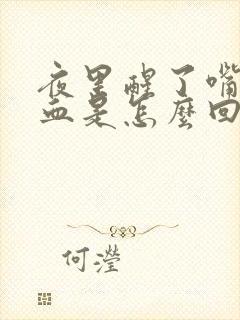 夜里醒了嘴
血是怎麼回
何瀅